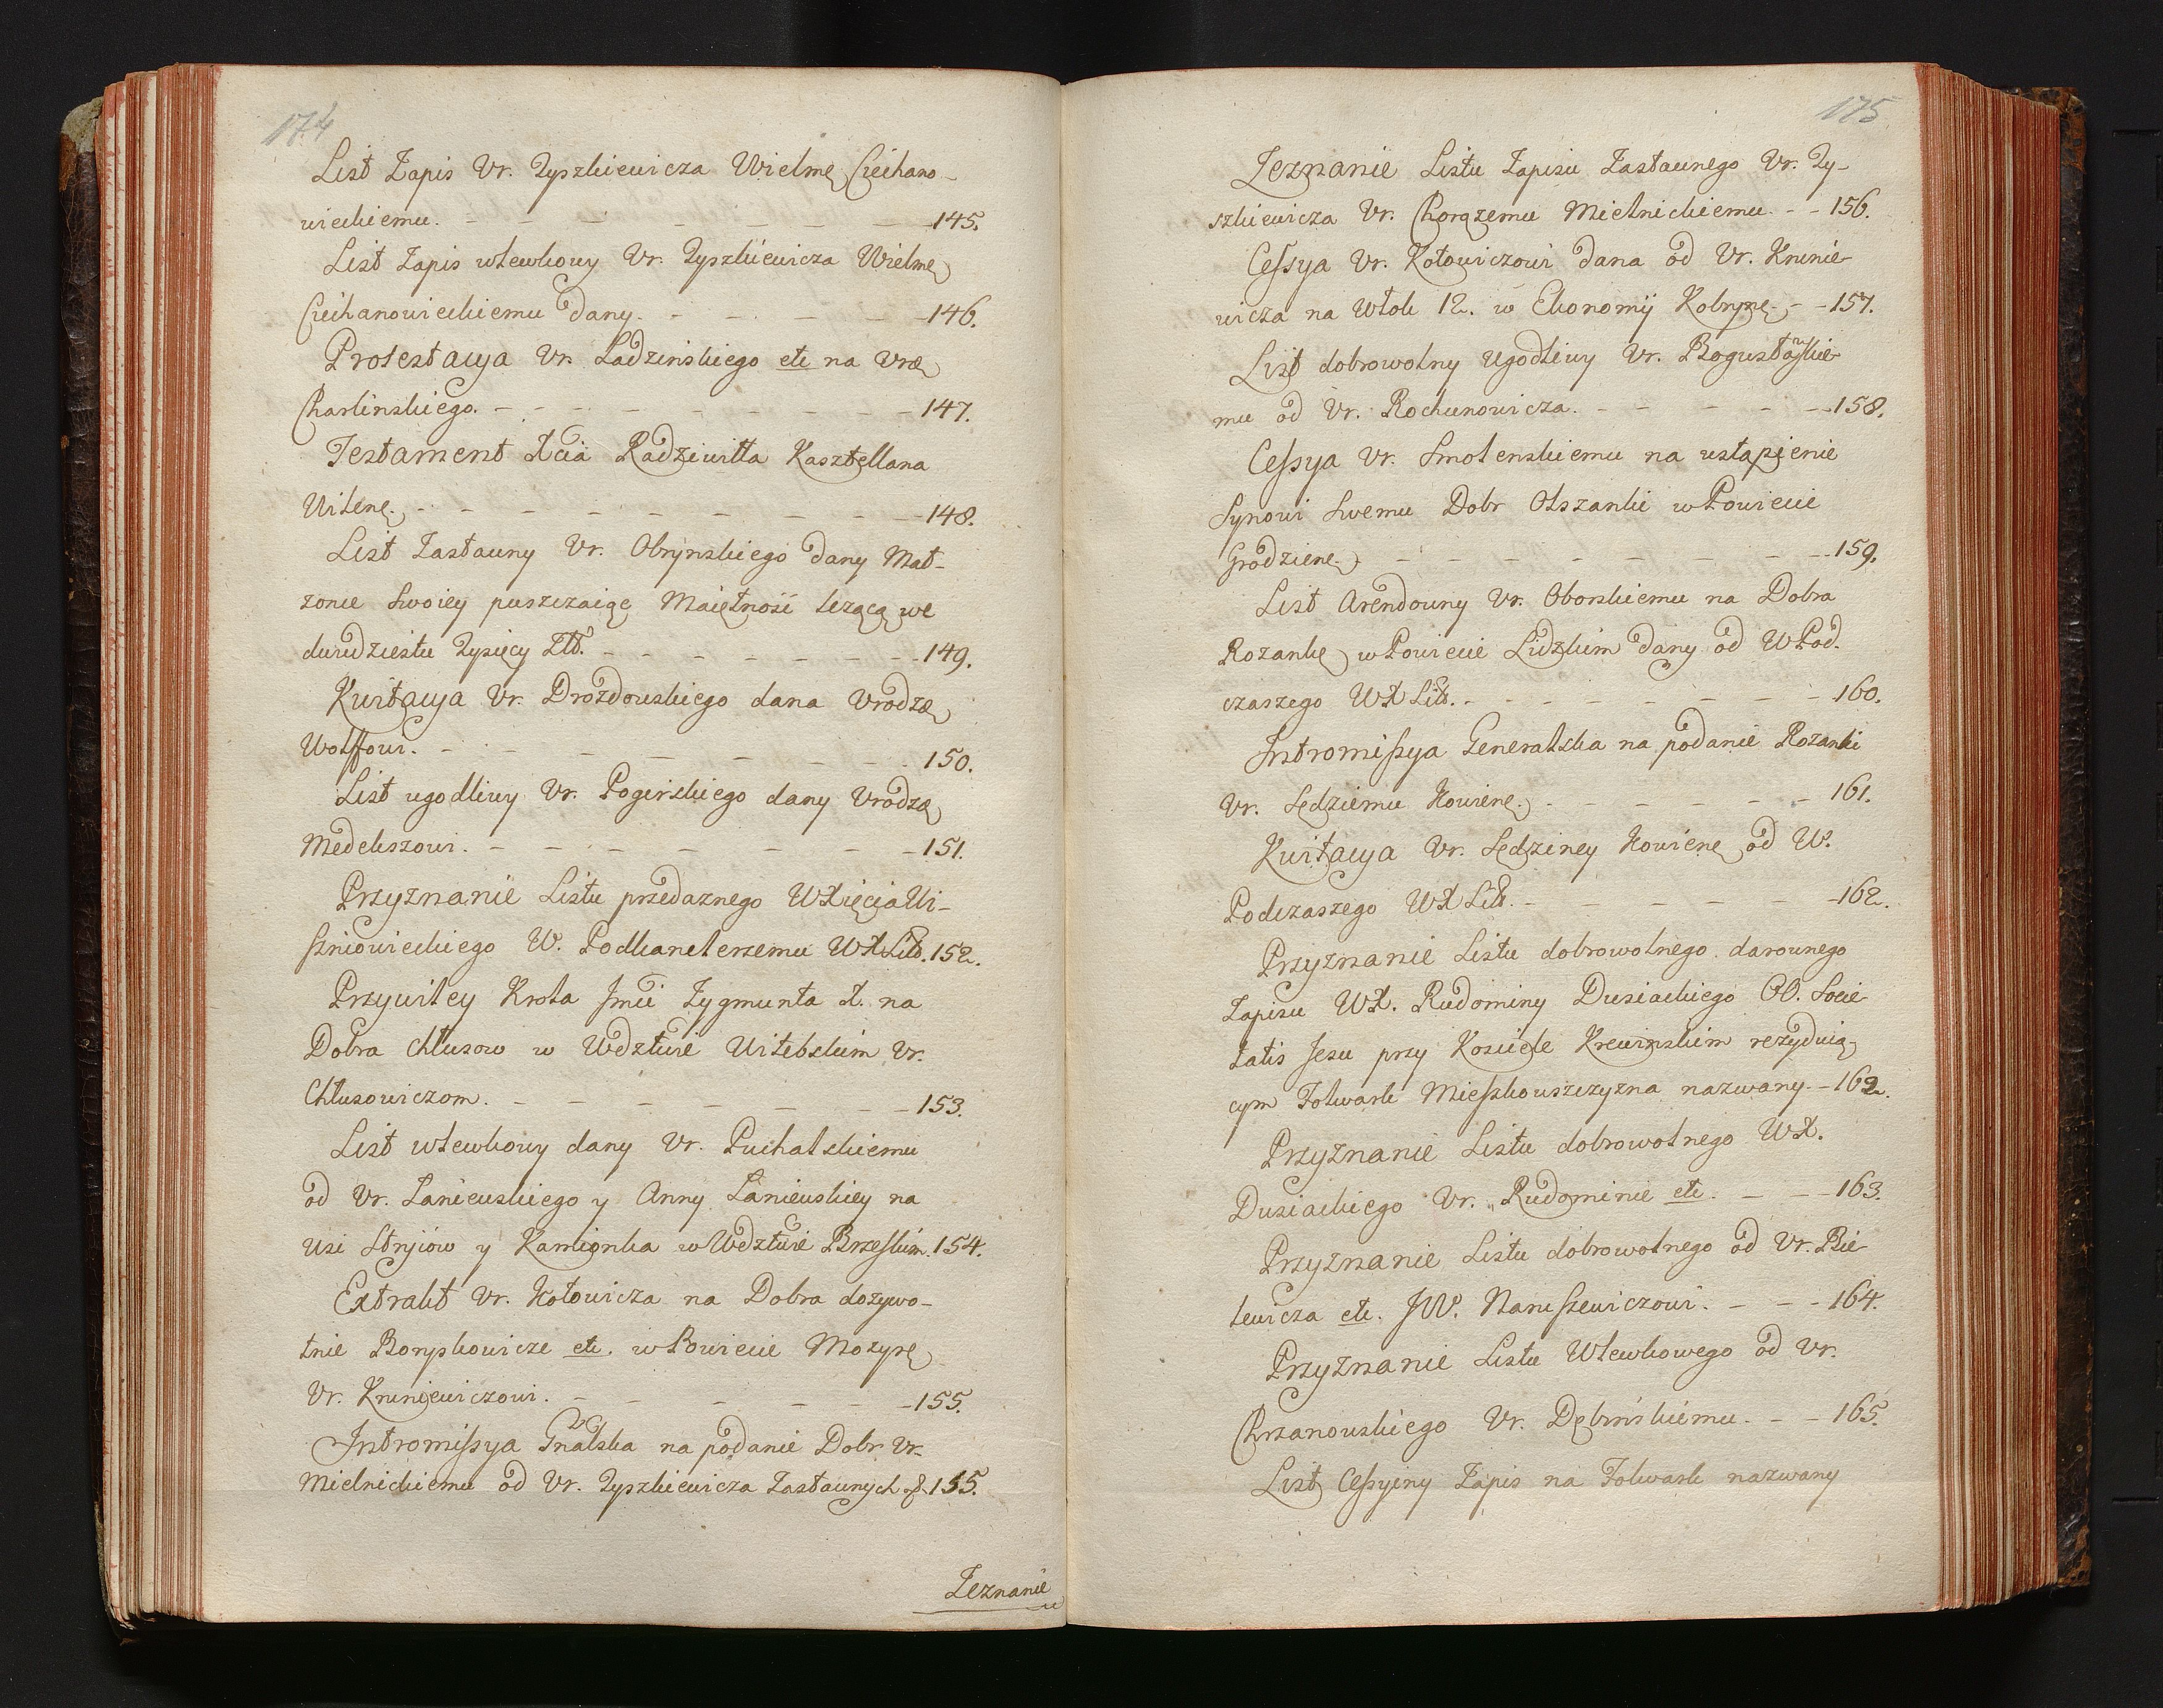 174
List Zapis Vr. Tyszkiewicza Wielmę Ciechano-
wieckiemu. - - - - - - - 145.
List Zapis wlewkowy Vr. Tyszkiewicza Wielmę
Ciechanowieckiemu dany. - - - - - 146.
Protestacya Vr. Ladzinskiego etc na Vro
Charlinskiego. - - - - - - - - 147.
Testament Xcia Radziwiłła Kasztellana
Wilenę. - - - - - - - - 148.
List Zastawny Vr. Obrynskiego dany Mał-
zonce Swoiey puszczaięc Maiętność lezącą we
dwudziestu Tysięcy Złł. - - - - - - - 149.
Kwitacya Vr. Drozdowskiego dana Vrodzo
Wolffowi. - - - - - - - 150.
List ugodliwy Vr. Pogirskiego dany Vrodzo
Medekszowi. - - - - - - - 151.
Przyznanie Listu przedaznego WXięcia Wi-
szniowieckiego W. Podkanclerzemu WXLitt. 152.
Przywiley Krola Jmci Zygmunta I. na
Dobra Chłusow w Wdztwie Witebskim Vr.
Chłusowiczom. - - - - - - - 153.
List wlewkowy dany Vr. Puchalskiemu
od Vr. Laniewskiego y Anny Laniewskiey na
Wsi Stryiow y Kamionka w Wdztwie Brzeskim. 154.
Extrakt Vr. Kotowicza na Dobra dozywo-
tnie Boryskowicze etc. w Powiecie Mozyrę
Vr. Kruniewiczowi. - - - - - 155.
Intromissya Gnalska na podanie Dobr Vr.
Mielnickiemu od Vr. Tyszkiewicza Zastawnych 155.
Zeznanie
175
Zeznanie Listu Zapisu Zastawnego Vr. Ty-
szkiewicza Vr. Chorązemu Mielnickiemu. - - 156.
Cessya Vr. Kotowiczowi dana od Vr. Krunie-
wicza na Włok 12. w Ekonomij Kobrynę. - - 157.
List dobrowolny ugodliwy Vr. Bogusławskie-
mu od Vr. Rochunowicza. - - - - - 158.
Cessya Vr. Smolenskiemu na ustąpienie
Synowi Swemu Dobr Olszanki w Powiecie
Grodzienę. - - - - - - - 159.
List Arendowny Vr. Oborskiemu na Dobra
Rozankę w Powiecie Lidzkim dany od W Pod-
czaszego WXLitt. - - - - - - - 160.
Intromissya Generalska na podanie Rozanki
Vr. Sędziemu Kowienę. - - - - - - 161.
Kwitacya Vr. Sędziney Kowienę od W.
Podczaszego WXLitt. - - - - - - 162.
Przyznanie Listu dobrowolnego darownego
Zapisu WX. Rudominy Dusiackiego OO. Socie-
tatis Jesu przy Kosciele Krewinskim rezyduią-
cym Folwark Mieszkowszczyzna nazwany. - 162.
Przyznanie Listu dobrowolnego WX.
Dusiackiego Vr. Rudominie etc. - - - 163.
Przyznanie Listu dobrowolnego od Vr. Bie-
lewicza etc. JW. Naruszewiczowi. - - - 164.
Przyznanie Listu Wlewkowego od Vr.
Chrzanowskiego Vr. Dębinskiemu. - - 165.
List Cessyiny Zapis na Folwark nazwany